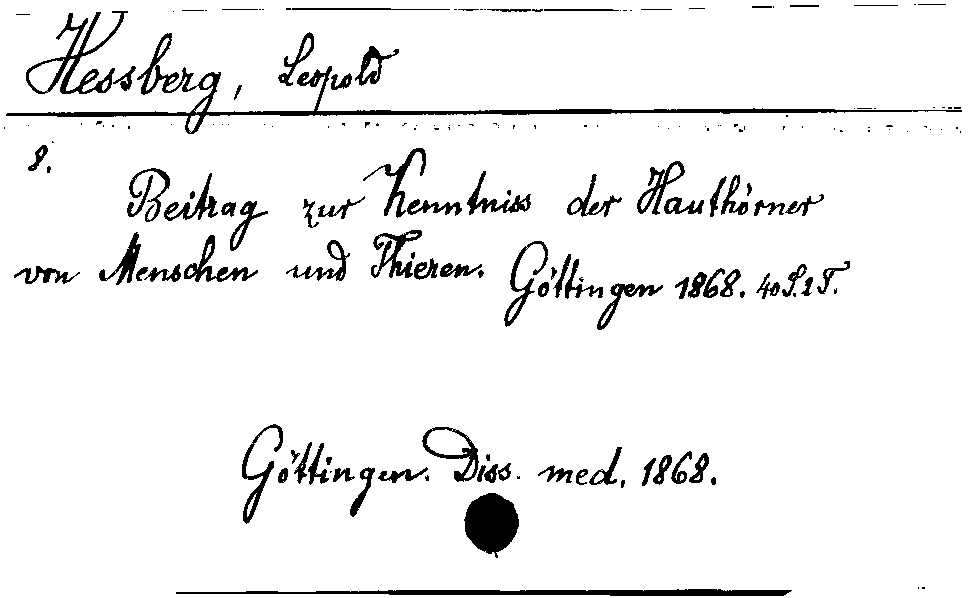 Hessberg, Leopold
8.
Beitrag zur Kenntniss der Hauthörner
von Menschen und Thieren. Göttingen 1868. 40 S. 2 T.
Göttingen. Diss. med. 1868.